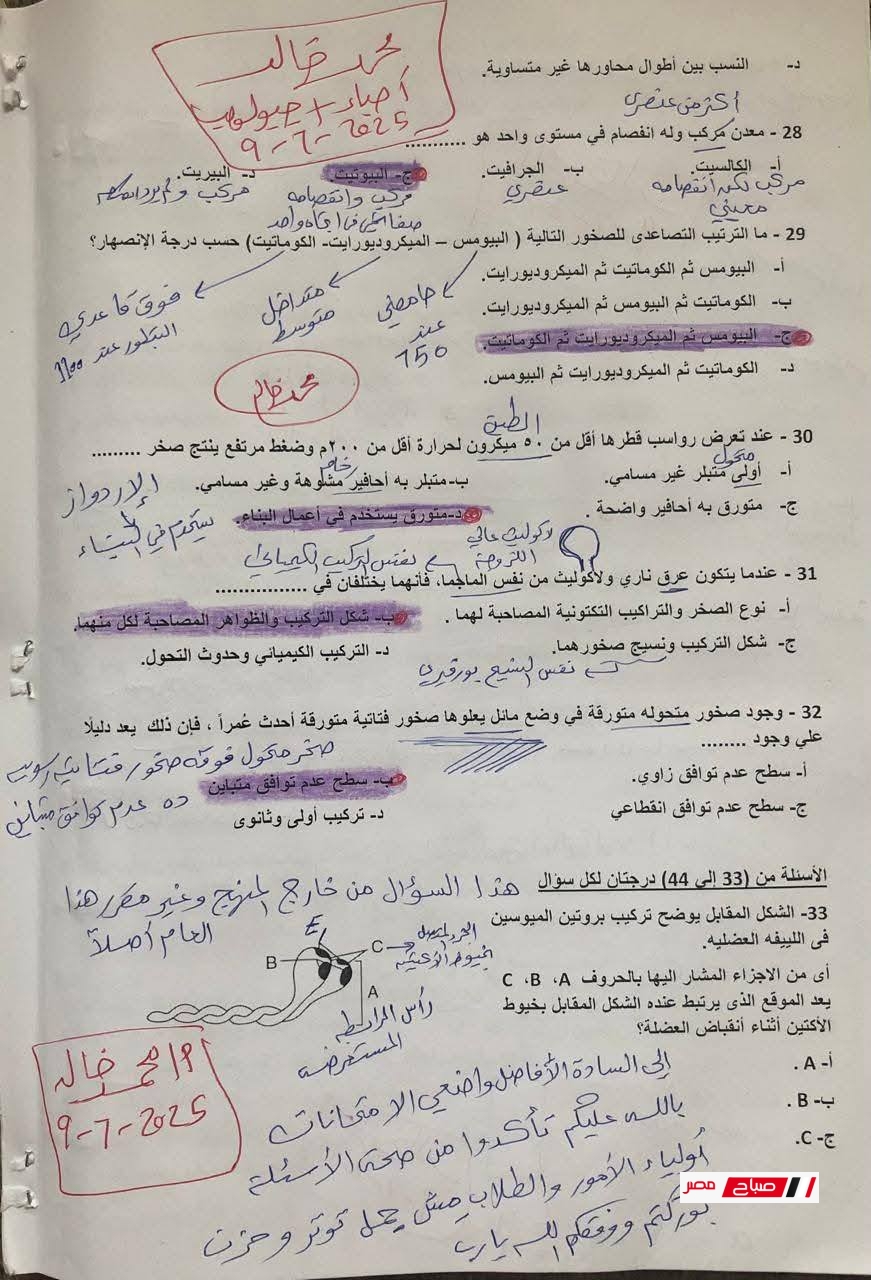 د- النسب بين أطوال محاورها غير متساوية.
محمد خالد
أحياء + جيولوجيا
9-7-2025
أكثر من عنصر
28 - معدن مركب وله انفصام في مستوى واحد هو ...........
أ- الكالسيت. ب- الجرافيت. ج- البيوتيت. د- البيريت.
مركب لكن انفصامه معيني
عنصري
مركب وانفصامه صفائحي في اتجاه واحد
29 - ما الترتيب التصاعدى للصخور التالية ( البيومس – الميكروديورايت- الكوماتيت) حسب درجة الإنصهار؟
أ- البيومس ثم الكوماتيت ثم الميكروديورايت.
ب- الكوماتيت ثم البيومس ثم الميكروديورايت.
ج- البيومس ثم الميكروديورايت ثم الكوماتيت.
د- الكوماتيت ثم الميكروديورايت ثم البيومس.
حامضي عند
متداخل متوسط
فوق قاعدي
التبلور عند 1100
محمد خالد
الطين
30 - عند تعرض رواسب قطرها أقل من ٥٠ ميكرون لحرارة أقل من ٢٠٠م وضغط مرتفع ينتج صخر .........
متحول
رخام
أ- أولى متبلر غير مسامي. ب- متبلر به أحافير مشوهة وغير مسامي.
ج- متورق به أحافير واضحة . د- متورق يستخدم في أعمال البناء.
الإردواز
يستخدم في البناء
لاكوليث عالي اللزوجة
نفس التركيب الكيميائي
31 - عندما يتكون عرق ناري ولاكوليث من نفس الماجما، فأنهما يختلفان في ................
أ- نوع الصخر والتراكيب التكتونية المصاحبة لهما . ب- شكل التركيب والظواهر المصاحبة لكل منهما.
ج- شكل التركيب ونسيج صخورهما. د- التركيب الكيميائي وحدوث التحول.
نفس النسيج بورفيري
32 - وجود صخور متحوله متورقة في وضع مائل يعلوها صخور فتاتية متورقة أحدث عُمراً ، فإن ذلك يعد دليلًا
علي وجود ........
أ- سطح عدم توافق زاوي. ب- سطح عدم توافق متباين
ج- سطح عدم توافق انقطاعي د- تركيب أولى وثانوى
صخر متحول فوقه صخور فتاتية رسوبية
ده عدم توافق متباين
الأسئلة من (33 إلى 44) درجتان لكل سؤال
هذا السؤال من خارج المنهج وغير مقرر هذا
العام أصلاً
33- الشكل المقابل يوضح تركيب بروتين الميوسين
فى اللييفه العضليه.
أى من الاجزاء المشار اليها بالحروف A، B، C
يعد الموقع الذى يرتبط عنده الشكل المقابل بخيوط
الأكتين أثناء أنقباض العضلة؟
E
B
C
A
رأس الرابطة
المستعرضة
أ- A .
ب- B .
ج- C.
أ/ محمد خالد
9-7-2025
إلى السادة الأفاضل واضعي الامتحانات
بالله عليكم تأكدوا من صحة الأسئلة
أولياء الأمور والطلاب مش حمل توتر وحزن
بوركتم ووفقكم الله يارب
صباح مصر